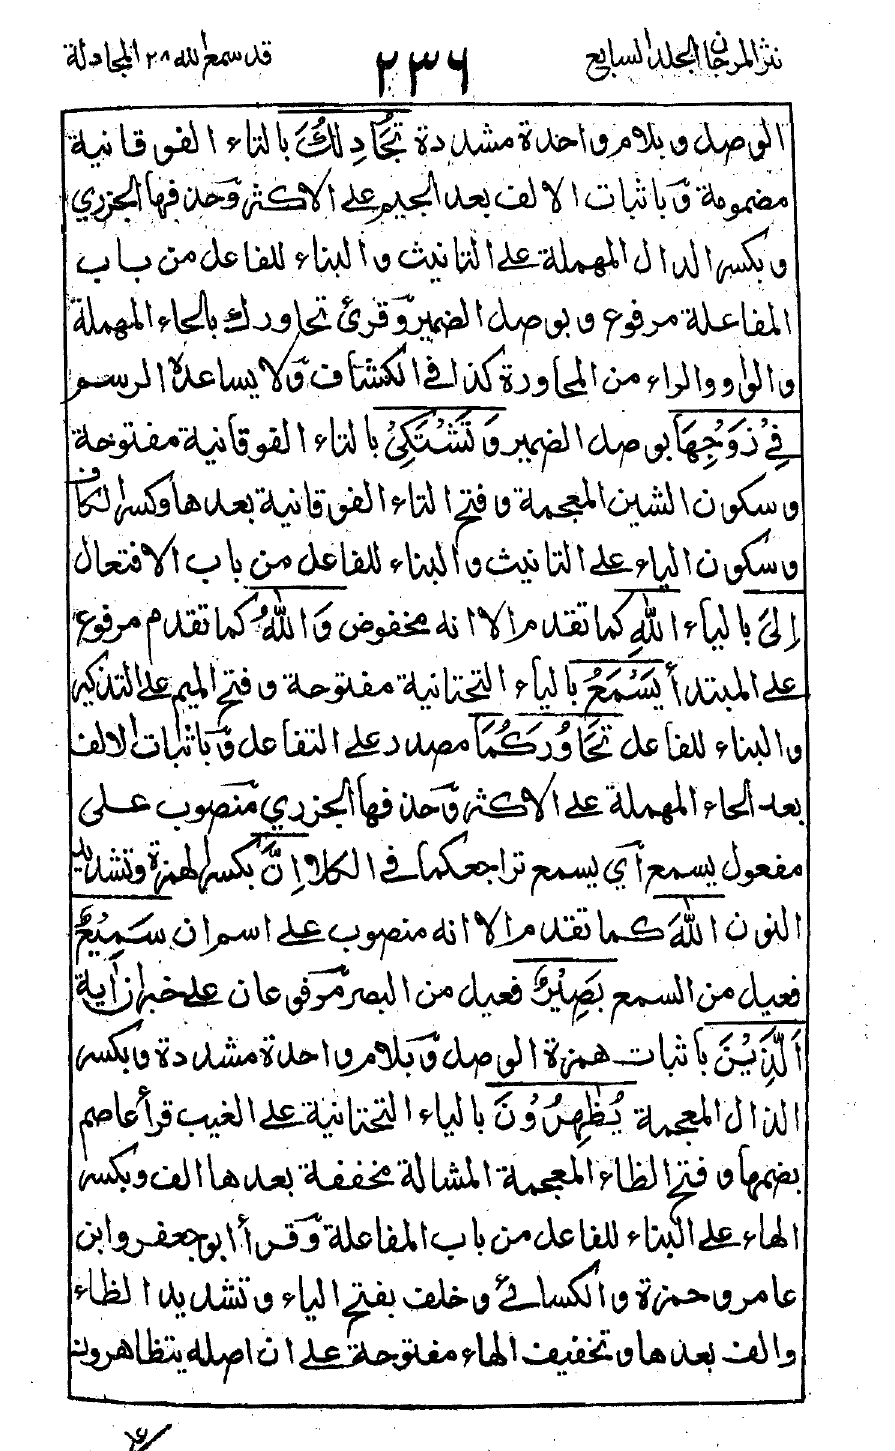 نثر المرجان الجلد السابع ٢٣٦ قد سمع الله ٢٨ المجادلة
الوصل وبلام واحدة مشددة تُجَادِلُكَ بالتاء الفوقانية
مضمومة وباثبات الالف بعد الجيم على الاكثر وحذفها الجزري
وبكسر الدال المهملة على التانيث والبناء للفاعل من باب
المفاعلة مرفوع وبوصل الضمير وقرئ تحاورك بالحاء المهملة
والواو والراء من المحاورة كذا في الكشاف ولا يساعده الرسم
فِيْ زَوْجِهَا بوصل الضمير وَتَشْتَكِيْ بالتاء الفوقانية مفتوحة
وسكون الشين المعجمة وفتح التاء الفوقانية بعدها وكسر الكاف
وسكون الياء على التانيث والبناء للفاعل من باب الافتعال
اِلَى بالياء اللهِ كما تقدم الا انه مخفوض وَاللهُ كما تقدم مرفوع
على المبتدأ يَسْمَعُ بالياء التحتانية مفتوحة وفتح الميم على التذكير
والبناء للفاعل تَحَاوُرَكُمَا مصدر على التفاعل وباثبات الالف
بعد الحاء المهملة على الاكثر وحذفها الجزري منصوب على
مفعول يسمع أي يسمع تراجعكما في الكلام اِنَّ بكسر الهمزة وتشديد
النون اللهَ كما تقدم الا انه منصوب على اسم ان سَمِيْعٌ
فعيل من السمع بَصِيْرٌ فعيل من البصر مرفوعان على خبر ان آية
اَلَّذِيْنَ باثبات همزة الوصل وبلام واحدة مشددة وبكسر
الذال المعجمة يُظٰهِرُوْنَ بالياء التحتانية على الغيب قرأ عاصم
بضمها وفتح الظاء المعجمة المشالة مخففة بعدها الف وبكسر
الهاء على البناء للفاعل من باب المفاعلة وقرأ ابو جعفر وابن
عامر وحمزة والكسائي وخلف بفتح الياء وتشديد الظاء
والف بعدها وتخفيف الهاء مفتوحة على ان اصله يتظاهرون